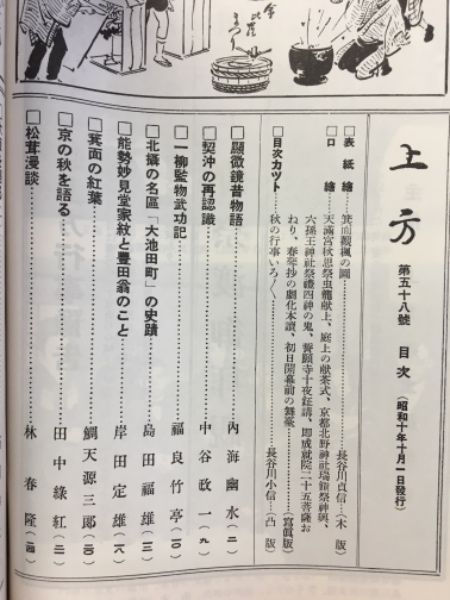 上方 第五十八號 目次 (昭和十年十月一日發行)
□表紙繪……箕面觀楓の圖……長谷川貞信…(木版)
□口繪……天滿宮秋思祭虫籠献上、庭上の献茶式、京都北野神社瑞饋祭神輿、
六孫王神社祭禮四神の鬼、誓願寺十夜鉦講、即成就院二十五菩薩お
ねり、春琴抄の劇化本讀、初日開幕前の舞臺……(寫眞版)
□目次カツト……秋の行事いろ〱……長谷川小信…(凸版)
□顯微鏡昔物語……內海幽水(二)
□契沖の再認識……中谷政一(九)
□一柳監物武功記……福良竹亭(一〇)
□北攝の名區「大池田町」の史蹟……島田福雄(一三)
□能勢妙見堂家紋と豐田翁のこと……岸田定雄(一八)
□箕面の紅葉……鯛天源三郎(二〇)
□京の秋を語る……田中綠紅(二二)
□松茸漫談……林春隆(二四)